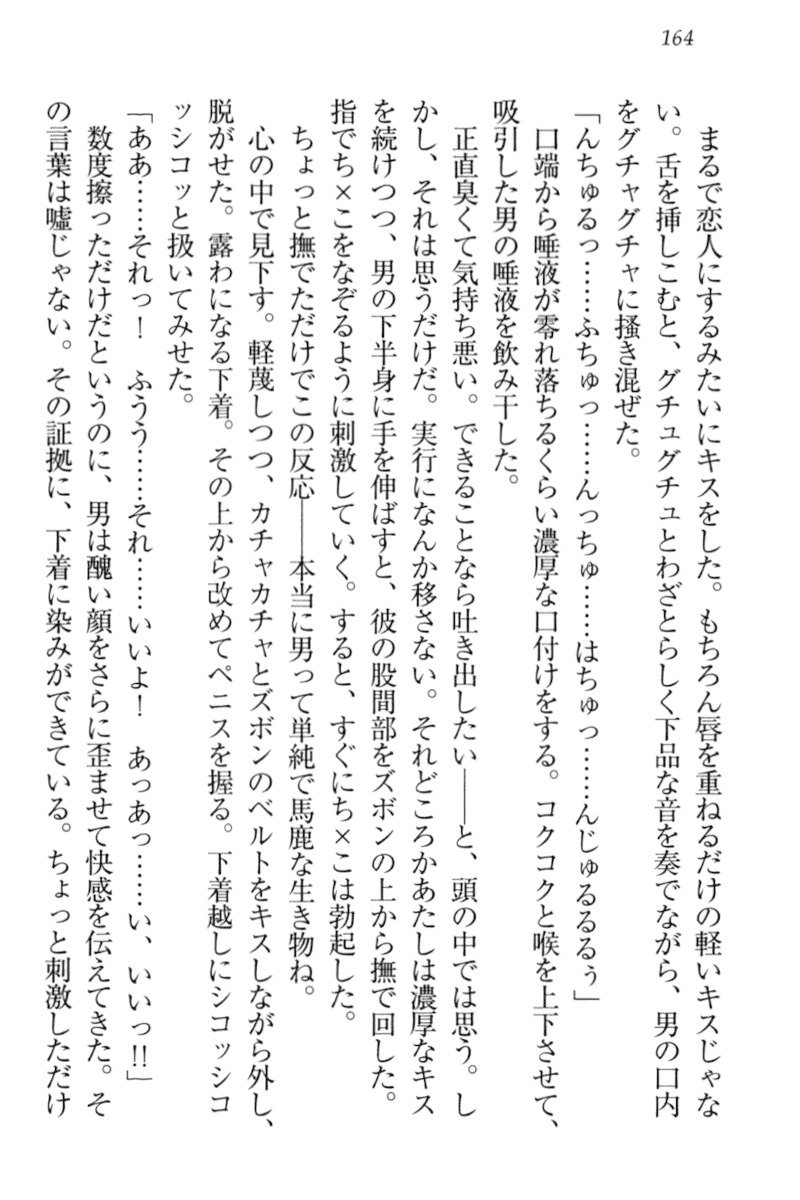 164
まるで恋人にするみたいにキスをした。もちろん唇を重ねるだけの軽いキスじゃな
い。舌を挿しこむと、グチュグチュとわざとらしく下品な音を奏でながら、男の口内
をグチャグチャに掻き混ぜた。
「んちゅるっ……ふちゅっ……んっちゅ……はちゅっ……んじゅるるるぅ」
口端から唾液が零れ落ちるくらい濃厚な口付けをする。コクコクと喉を上下させて、
吸引した男の唾液を飲み干した。
正直臭くて気持ち悪い。できることなら吐き出したい――と、頭の中では思う。し
かし、それは思うだけだ。実行になんか移さない。それどころかあたしは濃厚なキス
を続けつつ、男の下半身に手を伸ばすと、彼の股間部をズボンの上から撫で回した。
指でち×こをなぞるように刺激していく。すると、すぐにち×こは勃起した。
ちょっと撫でただけでこの反応――本当に男って単純で馬鹿な生き物ね。
心の中で見下す。軽蔑しつつ、カチャカチャとズボンのベルトをキスしながら外し、
脱がせた。露わになる下着。その上から改めてペニスを握る。下着越しにシコッシコ
ッシコッと扱いてみせた。
「ああ……それっ！　ふうう……それ……いいよ！　あっあっ……い、いいっ!!」
数度擦っただけだというのに、男は醜い顔をさらに歪ませて快感を伝えてきた。そ
の言葉は嘘じゃない。その証拠に、下着に染みができている。ちょっと刺激しただけ